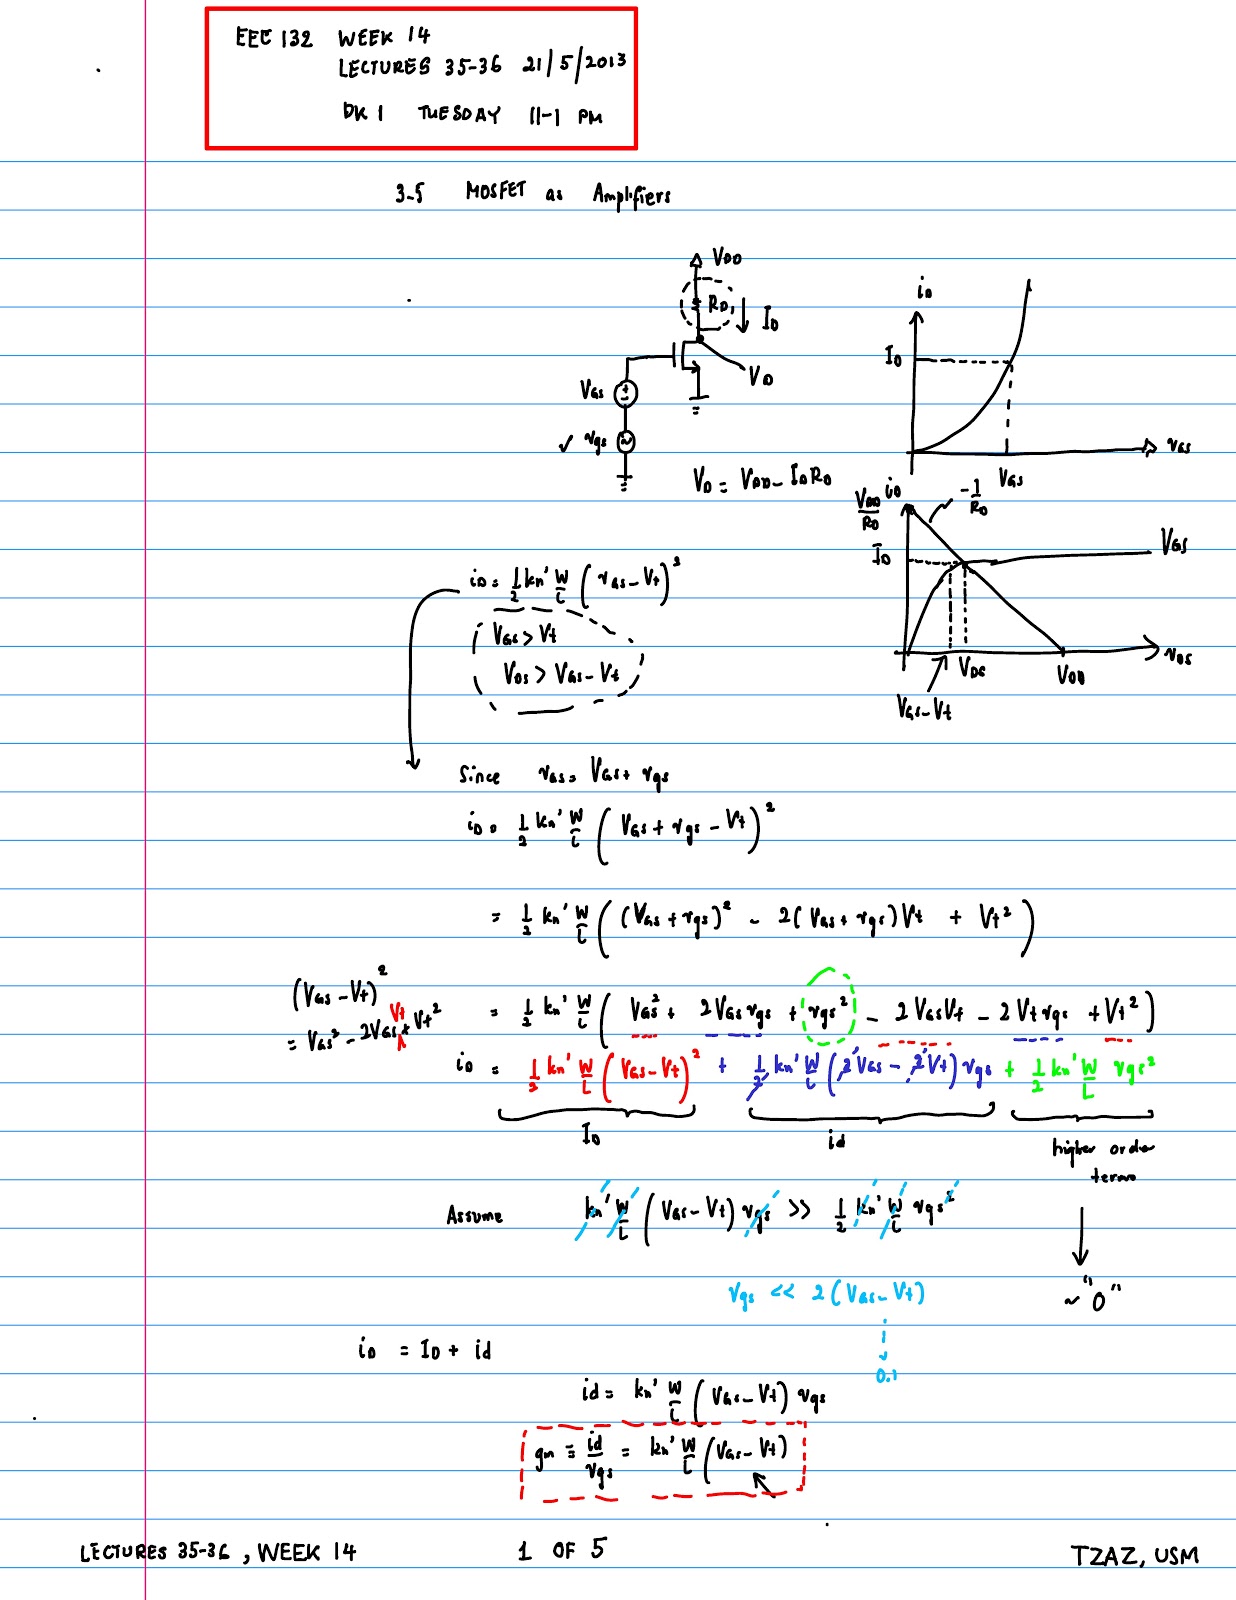 EEE 132 WEEK 14
LECTURES 35-36 21/5/2013
DK 1 TUESDAY 11-1 PM
3-5 MOSFET as Amplifiers
VDD
RD
ID
VD
VGS
✓ vgs
VD = VDD - IDRD
iD
ID
VGS
vGS
iD
VDD/RD
-1/RD
ID
VGS
VDS
VDD
vDS
VGS-Vt
iD = 1/2 kn' W/L (vGS - Vt)²
VGS > Vt
VDS > VGS - Vt
Since vGS = VGS + vgs
iD = 1/2 kn' W/L (VGS + vgs - Vt)²
= 1/2 kn' W/L ((VGS + vgs)² - 2(VGS + vgs)Vt + Vt²)
(VGS - Vt)²
= VGS² - 2VGS Vt + Vt²
= 1/2 kn' W/L (VGS² + 2VGS vgs + vgs² - 2VGSVt - 2Vt vgs + Vt²)
iD = 1/2 kn' W/L (VGS - Vt)² + 1/2 kn' W/L (2VGS - 2Vt) vgs + 1/2 kn' W/L vgs²
ID
id
higher order
terms
Assume kn' W/L (VGS - Vt) vgs >> 1/2 kn' W/L vgs²
vgs << 2(VGS - Vt)
~ "0"
0.1
iD = ID + id
id = kn' W/L (VGS - Vt) vgs
gm ≡ id/vgs = kn' W/L (VGS - Vt)
LECTURES 35-36, WEEK 14
1 OF 5
TZAZ, USM